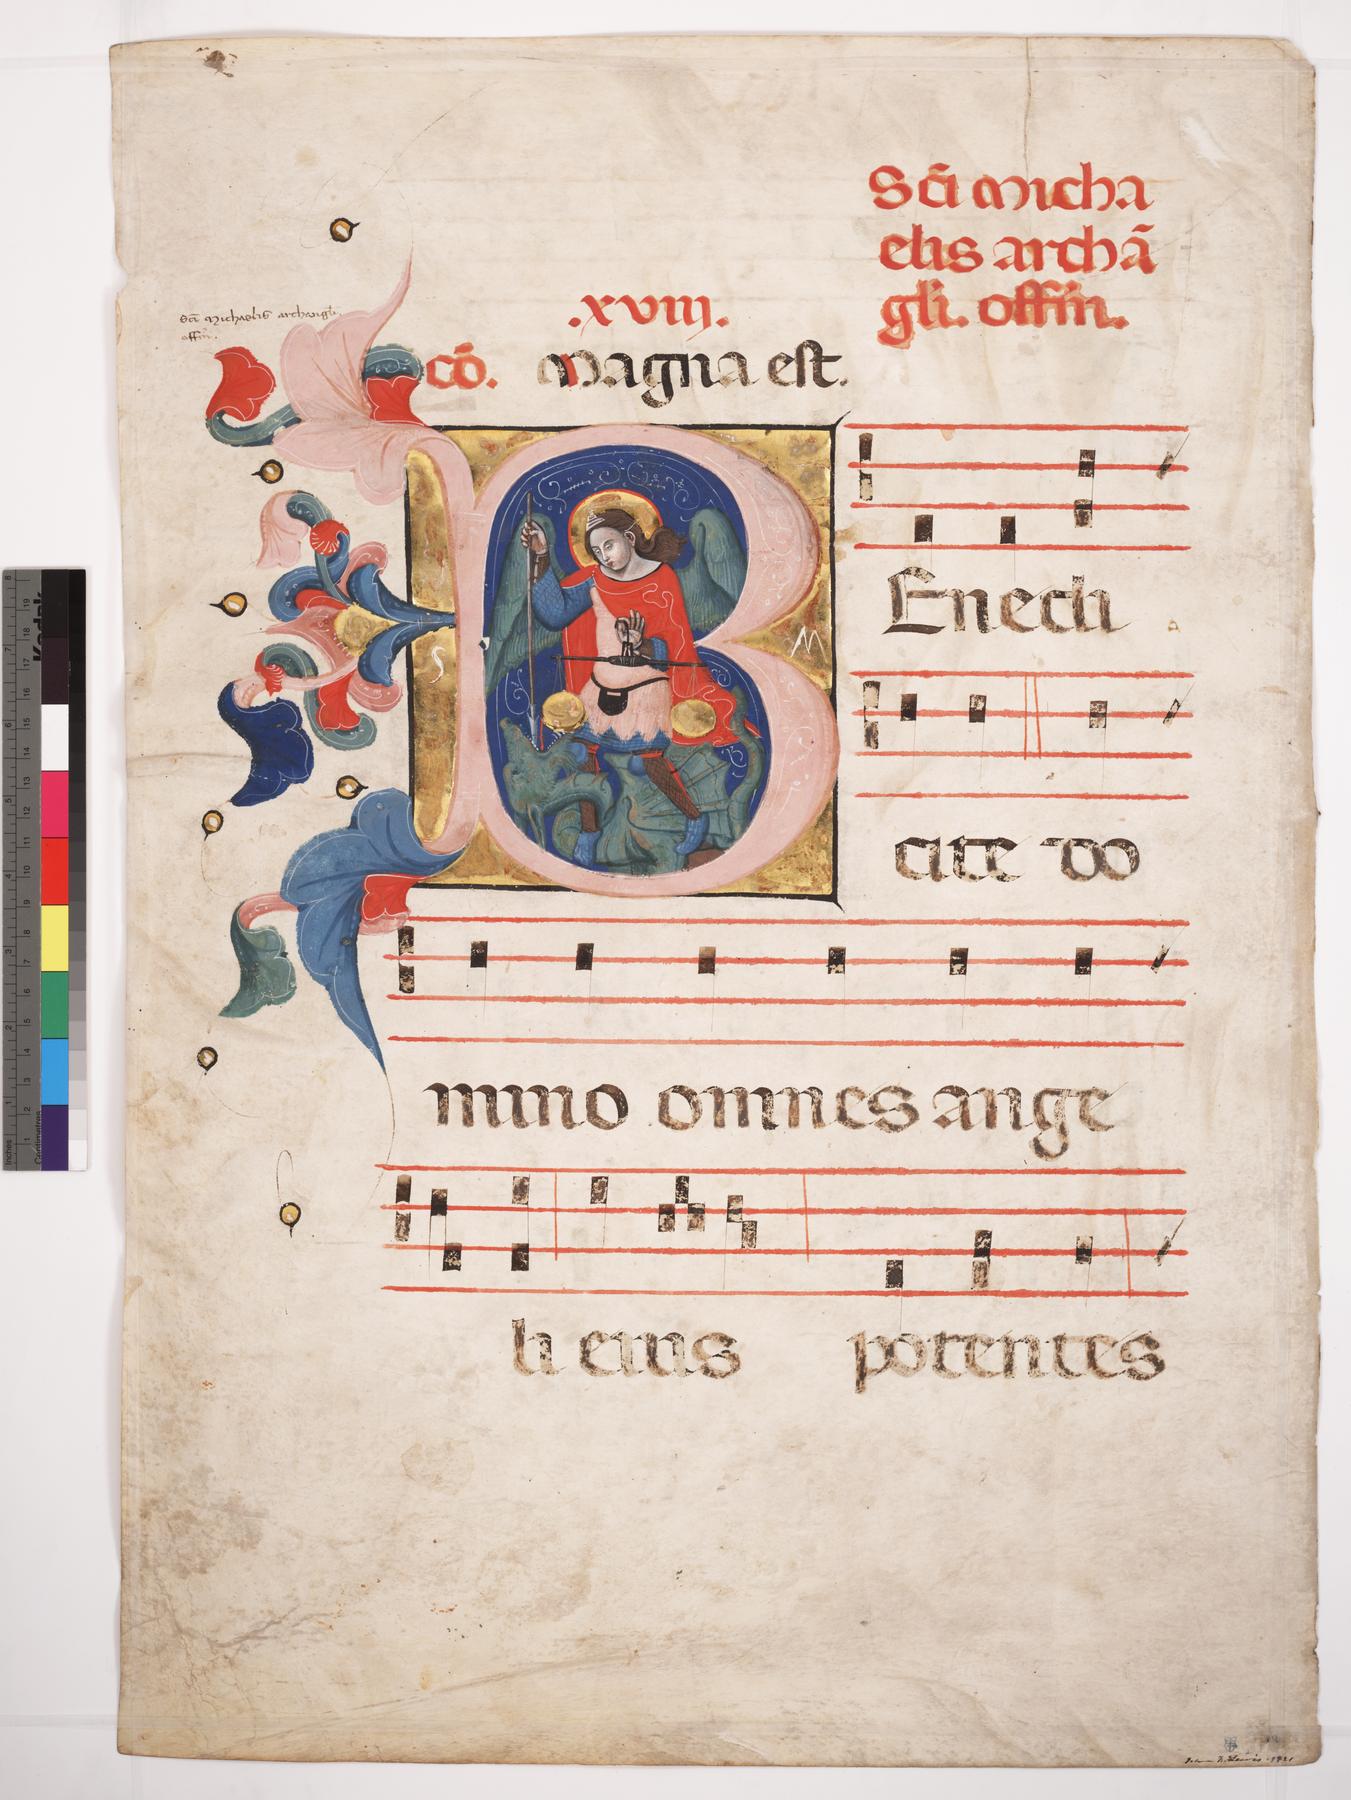 Sc̄i micha
elis archā
gli. offm̄.
sc̄i michaelis archangli
offm̄.
.xviii.
cō. magna est.
S M
B Enedi
cite do
mino omnes ange
li eius potentes
Kodak
Inches
Centimetres
John F. Lewis